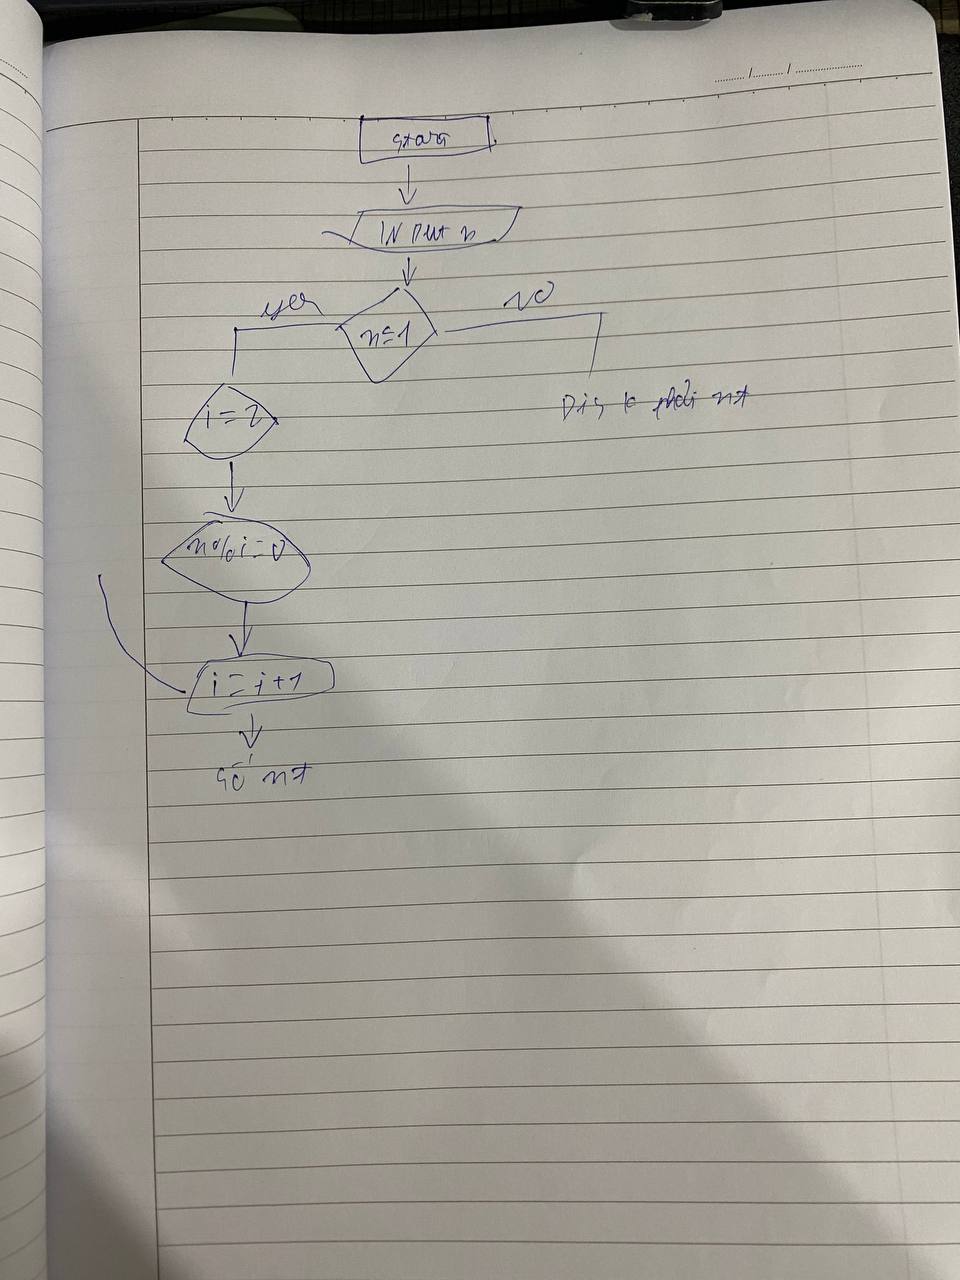 start
INPUT n
yes
n≤1
NO
i=2
Dis k phải nt
n%i=0
i=i+1
Số nt